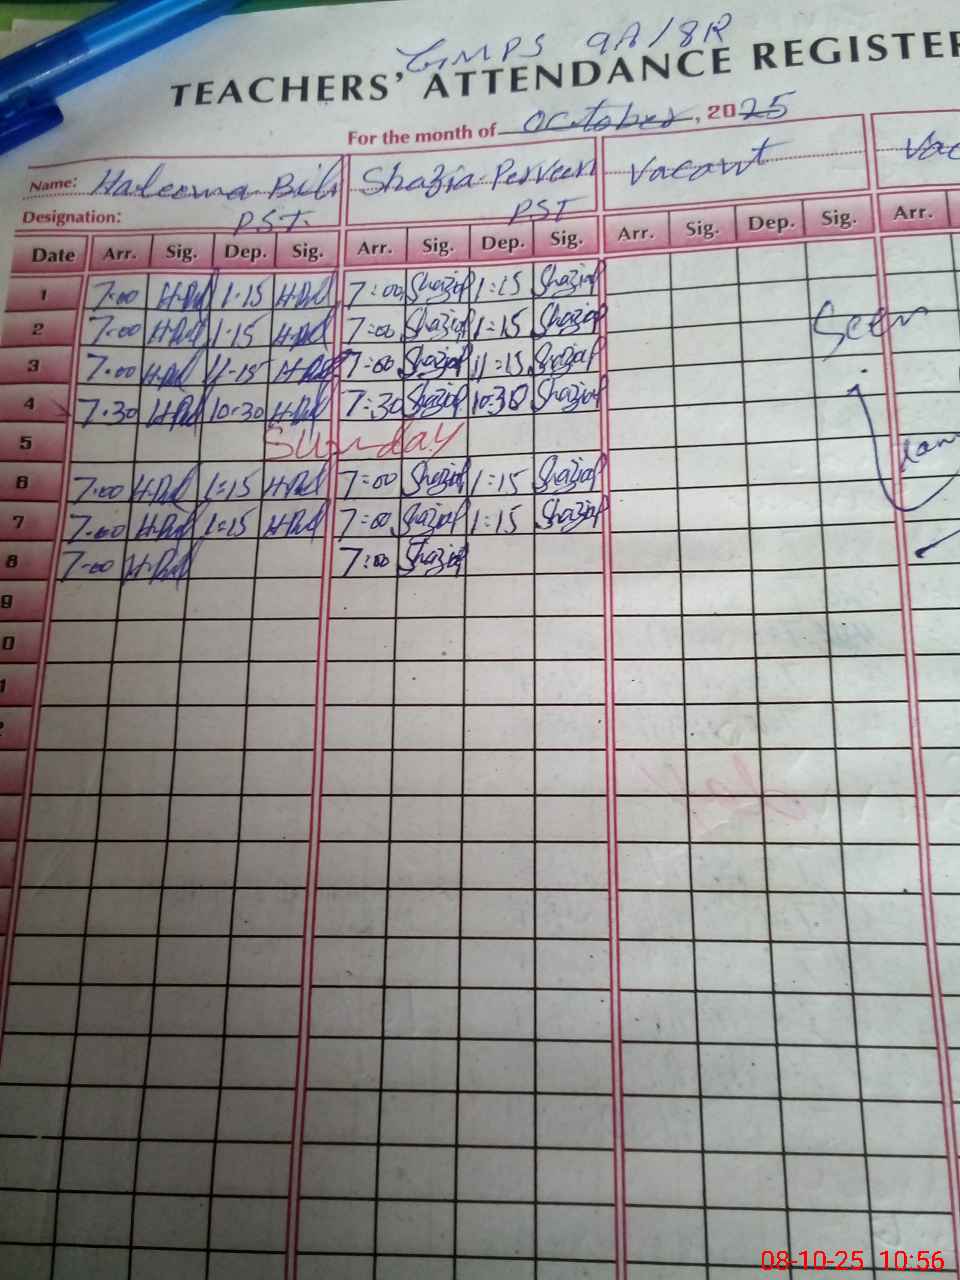 GMPS 9A/8R
TEACHERS' ATTENDANCE REGISTER
For the month of October, 2025
Name: Haleema Bibi Shazia Perveen Vacant Vac
Designation: P.S.T. PST
Date Arr. Sig. Dep. Sig. Arr. Sig. Dep. Sig. Arr. Sig. Dep. Sig. Arr.
1 7.00 1.15 7:00 Shazia 1:15 Shazia
2 7.00 1.15 7:00 Shazia 1:15 Shazia Seen
3 7.00 1.15 7:00 Shazia 1:15 Shazia
4 7.30 10.30 7:30 Shazia 10:30 Shazia
5 Sunday
6 7.00 1:15 7:00 Shazia 1:15 Shazia
7 7.00 1:15 7:00 Shazia 1:15 Shazia
8 7.00 7:00 Shazia
9
0
1
2
08-10-25 10:56